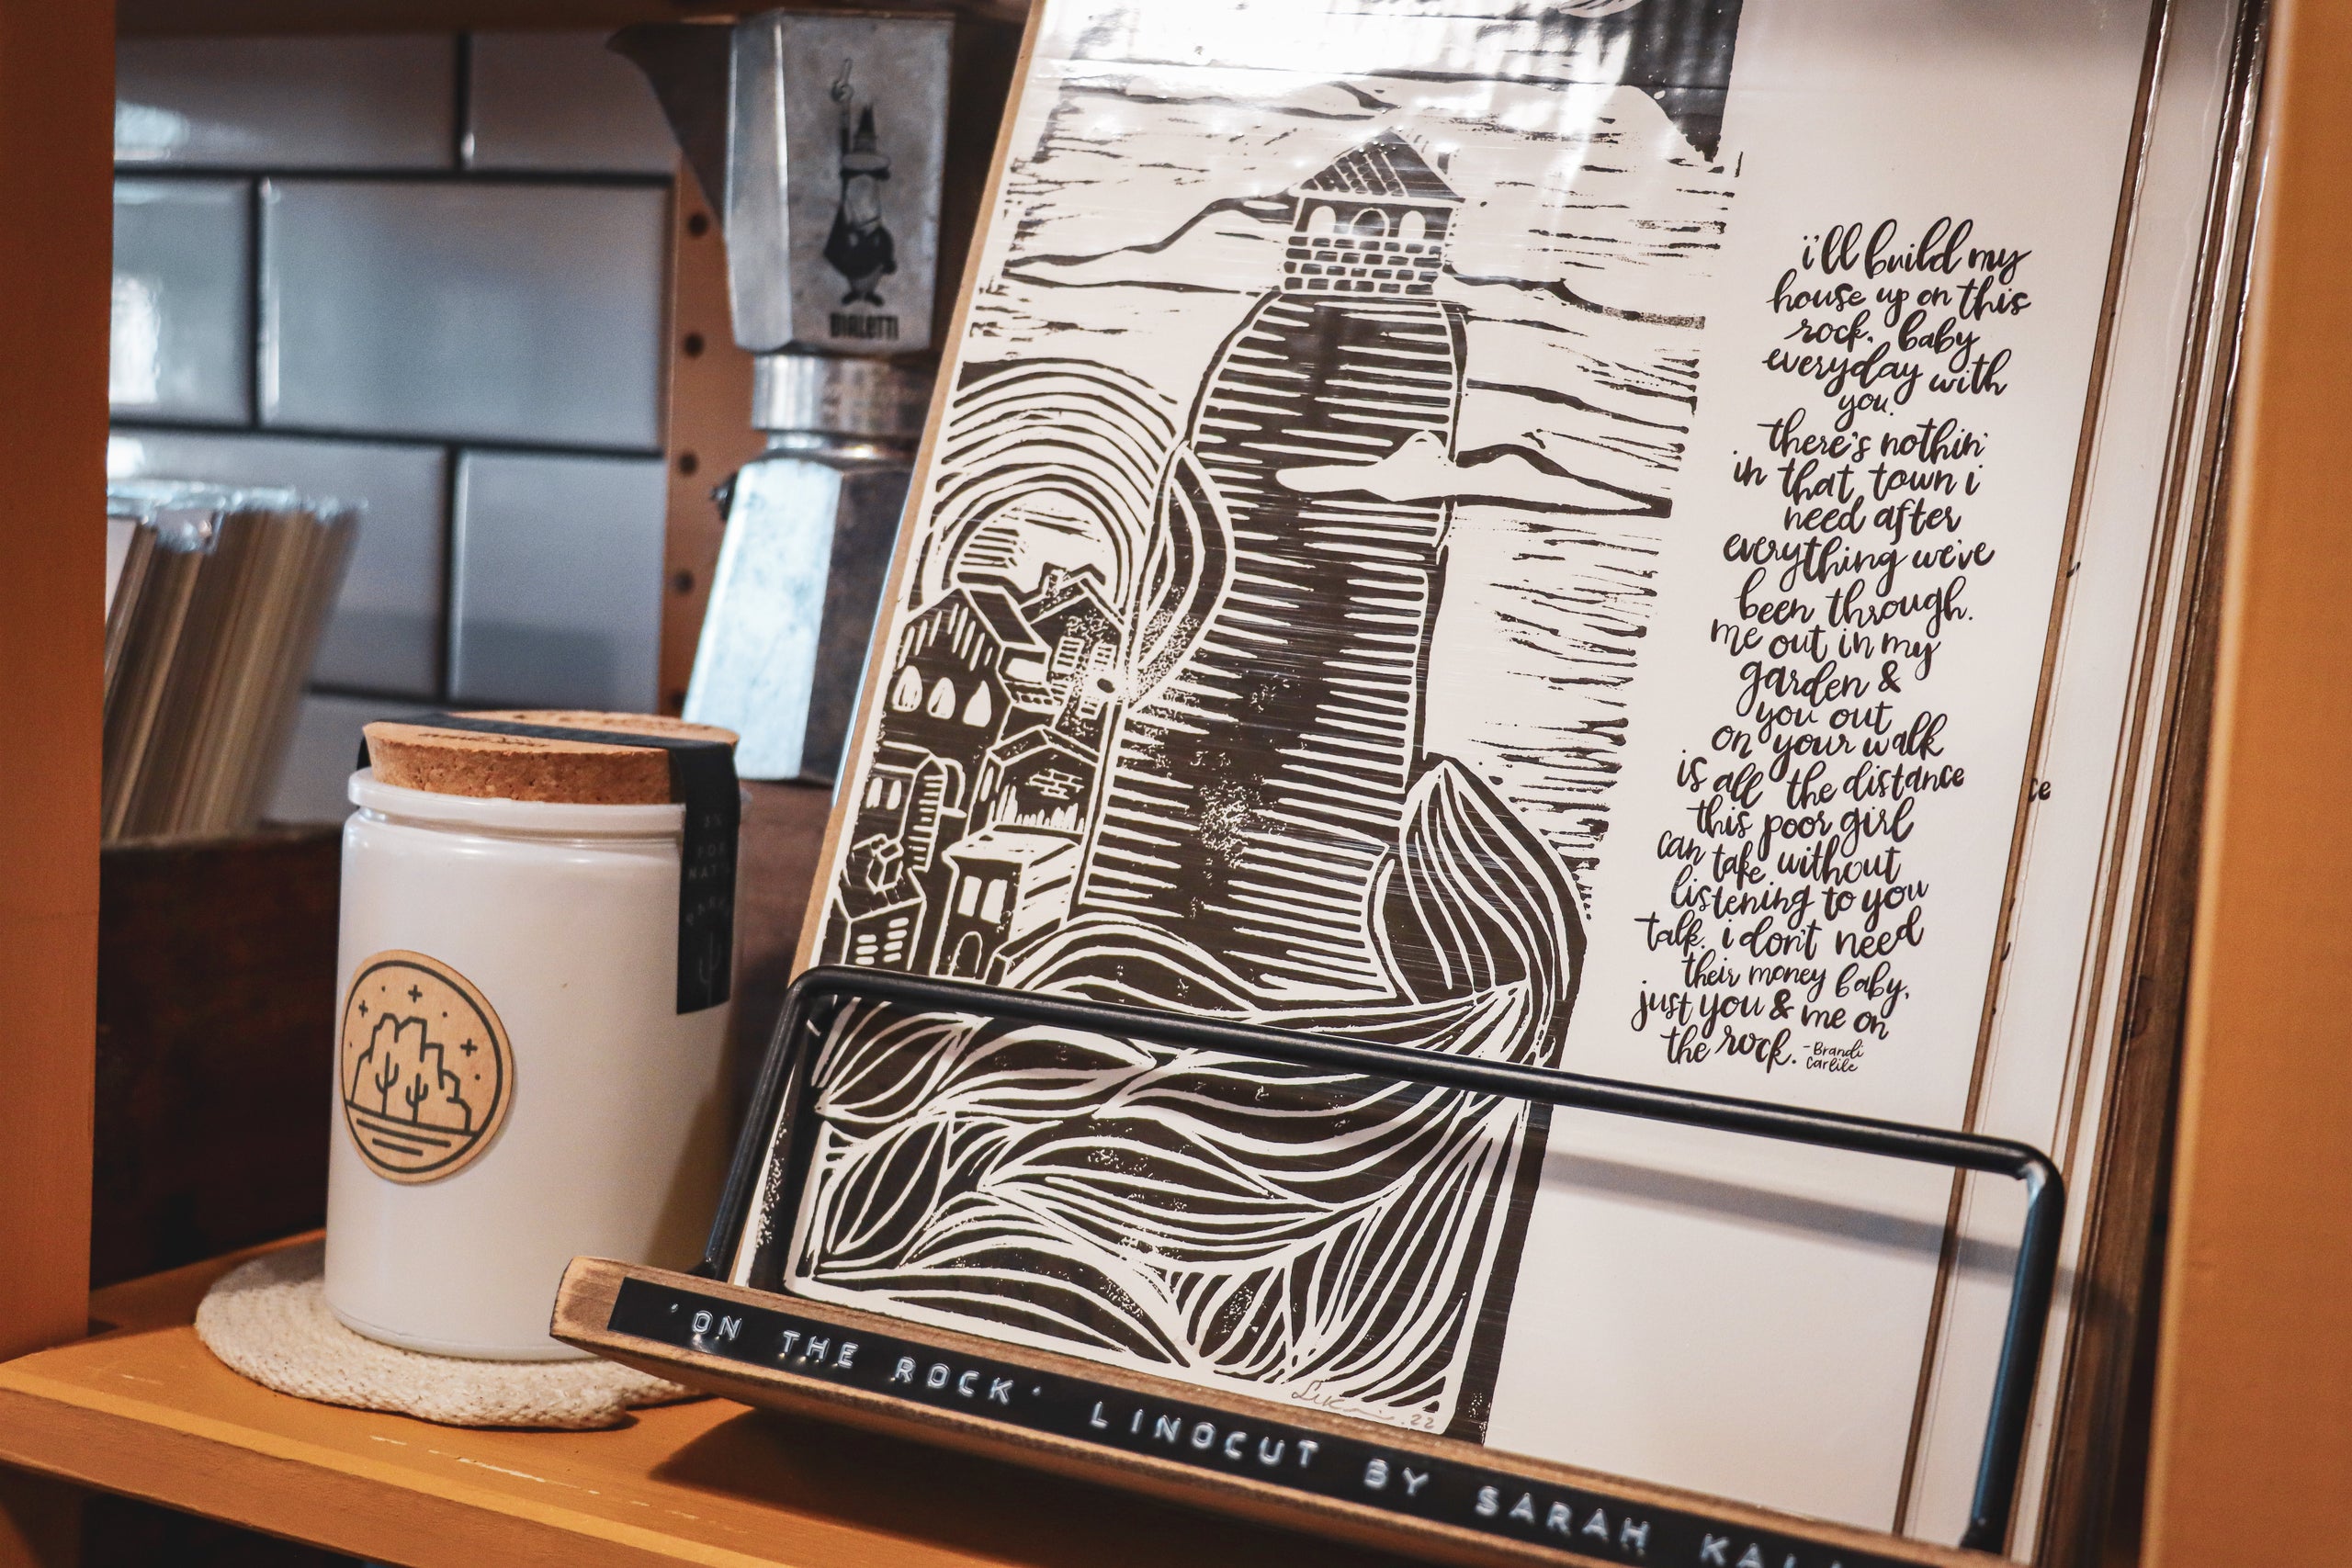 BIALETTI
i'll build my
house up on this
rock, baby
everyday with
you.
there's nothin'
in that town i
need after
everything we've
been through.
me out in my
garden &
you out
on your walk
is all the distance
this poor girl
can take without
listening to you
talk. i don't need
their money baby,
just you & me on
the rock.
-Brandi
Carlile
ce
FOR
22
'ON THE ROCK' LINOCUT BY SARAH